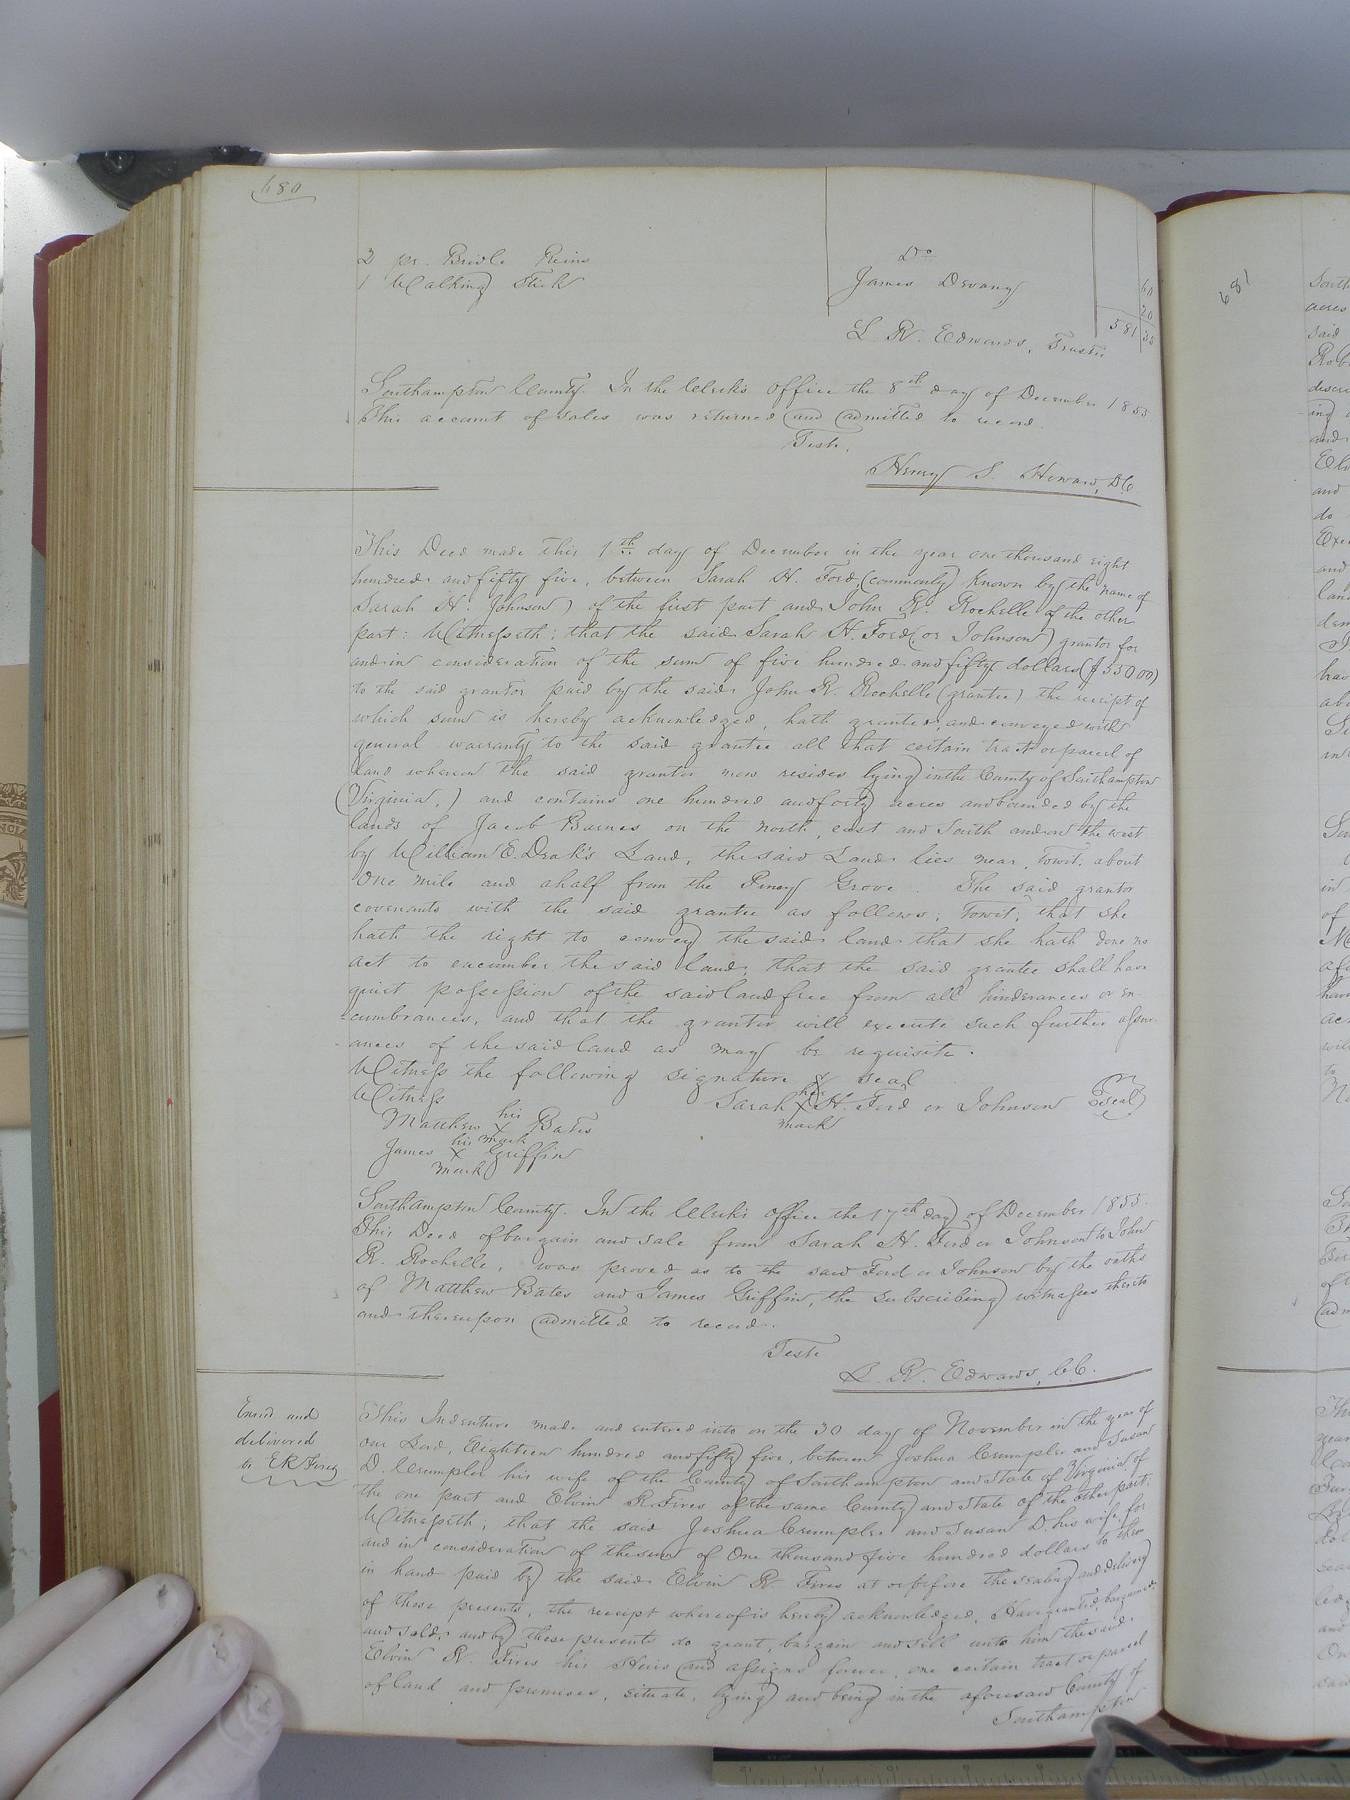 680
2 pr. Bridle Reins Do 60
1 Walking Stick James Devany 20
581 35
L. R. Edwards, Trustee
Southampton County. In the Clerk's Office the 8th day of December 1855
This account of sales was returned and admitted to record.
Teste,
Henry S. Howard, D.C.
This Deed made this 1th day of December in the year one thousand eight
hundred and fifty five, between Sarah H. Ford, (commonly known by the name of
Sarah H. Johnson) of the first part and John R. Rochelle of the other
part: Witnesseth: that the said Sarah H. Ford (or Johnson) grantor for
and in consideration of the sum of five hundred and fifty dollars ($550 00)
to the said grantor paid by the said John R. Rochelle (grantee) the receipt of
which sum is hereby acknowledged, hath granted, and conveyed with
general warranty to the said grantee all that certain tract or parcel of
land whereon the said grantor now resides lying in the County of Southampton
(Virginia,) and contains one hundred and forty acres and bounded by the
lands of Jacob Barnes on the north, east and South and on the west
by William E. Drak's Land, the said Land lies near, Towit, about
One mile and a half from the Piney Grove. The said grantor
covenants with the said grantee as follows; Towit; that she
hath the right to convey the said land that she hath done no
act to encumber the said land, that the said grantee shall have
quiet possession of the said land free from all hinderances or en
cumbrances, and that the grantor will execute such further assur-
ances of the said land as may be requisite.
Witness the following signature & seal
Witness
Sarah her X mark H. Ford or Johnson (Seal)
Matthew his X mark Bates
James his X mark Griffin
Southampton County. In the Clerk's Office the 17th day of December 1855.
This Deed of bargain and sale from Sarah H. Ford or Johnson to John
R. Rochelle, was proved as to the said Ford or Johnson by the oaths
of Matthew Bates and James Griffin, the subscribing witnesses thereto
and thereupon admitted to record.
Teste
L. R. Edwards, C.C.
Exm'd and
delivered
to E R
This Indenture made and entered into on the 30 day of November in the year of
our Lord, Eighteen hundred and fifty five, between Joshua Crumpler and Susan
D. Crumpler his wife of the County of Southampton and State of Virginia of
the one part and Elvin R. Fires of the same County and State of the other part:
Witnesseth; that the said Joshua Crumpler and Susan D. his wife, for
and in consideration of the sum of One thousand five hundred dollars to them
in hand paid by the said Elvin R. Fires at or before the sealing and delivery
of these presents, the receipt whereof is hereby acknowledged, Have granted, bargained
and sold, and by these presents do grant, bargain and sell unto him the said
Elvin R. Fires his Heirs and assigns forever, one certain tract or parcel
of land and premises, situate, lying and being in the aforesaid County of
Southampton
681